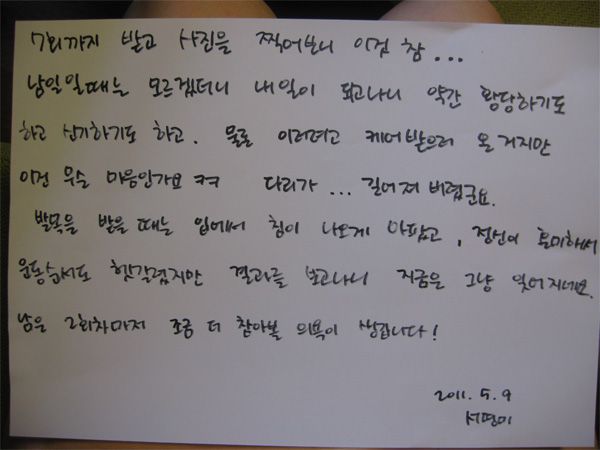 7회까지 받고 사진을 찍어보니 이건 참...
남일일때는 모르겠더니 내일이 되고나니 약간 황당하기도
하고 신기하기도 하고. 물론 이러려고 케어받으러 온거지만
이건 무슨 마음인가요 ㅋㅋ 다리가... 길어져 버렸군요.
발목을 받을때는 입에서 침이 나오게 아팠고, 정신이 혼미해서
운동순서도 헷갈렸지만 결과를 보고나니 지금은 그냥 잊어지네요.
남은 2회차마저 조금 더 참아볼 의욕이 생깁니다!
2011. 5. 9